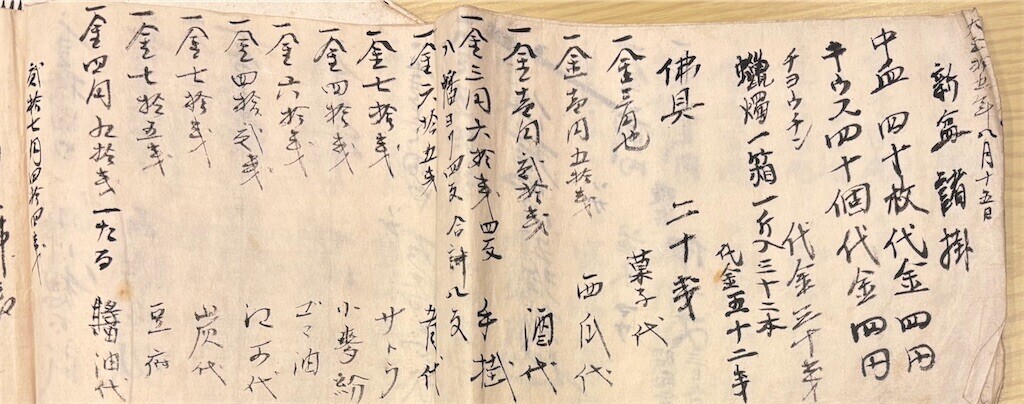 大正拾五年八月十五日
新盆諸掛
中皿四十枚代金四円
キウス四十個代金四円
チヨウチン 代金三十銭
蠟燭一箱一斤入三十二本
代金五十二銭
佛具 二十銭
一金三円也 菓子代
一金壱円五拾銭 西瓜代
一金壱円弐拾銭 酒代
一金三円六拾銭四反 手掛
八幡ヨリ四反合計八反
一金六拾五銭 代
一金七拾銭 サトウ
一金四拾銭 小麥粉
一金六拾銭 ゴマ油
一金四拾弐銭 代
一金七拾銭 炭代
一金七拾五銭 豆腐
一金四円九拾銭一たる 醬油代
弐拾七円四拾四銭